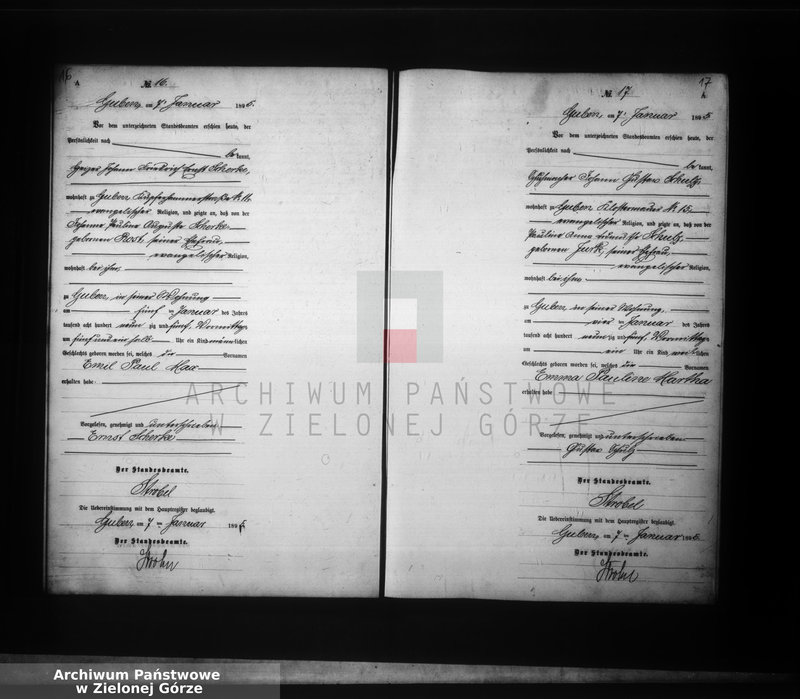 16
A
№ 16.
Guben am 7. Januar 1895.
Vor dem unterzeichneten Standesbeamten erschien heute, der
Persönlichkeit nach
be kannt,
Johann Friedrich Ernst Scherke,
wohnhaft zu Guben
evangelischer Religion, und zeigte an, daß von der
Johanne Pauline Auguste Scherke
geborenen Post, seiner Ehefrau,
evangelischer Religion,
wohnhaft bei ihm
zu Guben, in seiner Wohnung
am fünf ten Januar des Jahres
tausend acht hundert neun zig und fünf, Vormittags
um fünf und ein halb Uhr ein Kind männlichen
Geschlechts geboren worden sei, welches die Vornamen
Emil Paul Max
erhalten habe
Vorgelesen, genehmigt und unterschrieben
Ernst Scherke
Der Standesbeamte.
Strobel
Die Uebereinstimmung mit dem Hauptregister beglaubigt.
Guben am 7 ten Januar 1895.
Der Standesbeamte.
Strobel
17
A
№ 17
Guben am 7. Januar 1895
Vor dem unterzeichneten Standesbeamten erschien heute, der
Persönlichkeit nach
be kannt,
Johann Gustav Schulz,
wohnhaft zu Guben, № 15,
evangelischer Religion, und zeigte an, daß von der
Pauline Anna Auguste Schulz,
geborenen Jurk, seiner Ehefrau,
evangelischer Religion,
wohnhaft bei ihm
zu Guben, in seiner Wohnung,
am vier ten Januar des Jahres
tausend acht hundert neun zig und fünf, Vormittags
um ein Uhr ein Kind weiblichen
Geschlechts geboren worden sei, welches die Vornamen
Emma Pauline Martha
erhalten habe
Vorgelesen, genehmigt und unterschrieben
Gustav Schulz
Der Standesbeamte.
Strobel
Die Uebereinstimmung mit dem Hauptregister beglaubigt.
Guben, am 7 ten Januar 1895.
Der Standesbeamte.
Strobel
ARCHIWUM PAŃSTWOWE
W ZIELONEJ GÓRZE
Archiwum Państwowe
w Zielonej Górze